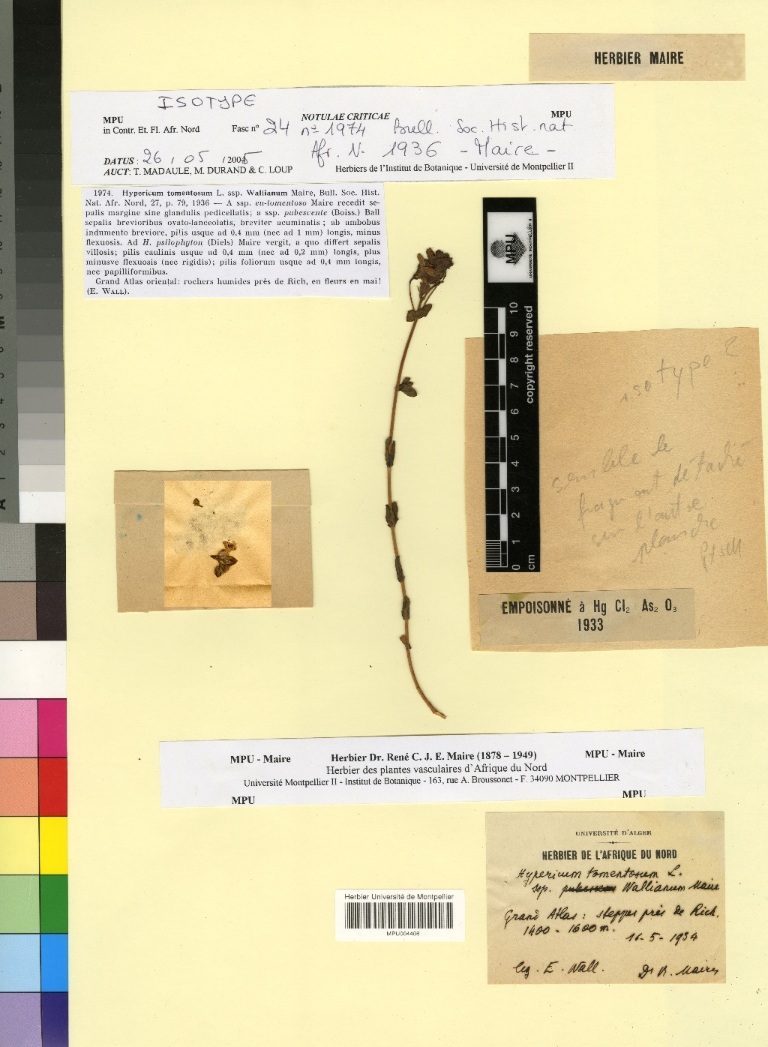 HERBIER MAIRE
ISOTYPE
MPU NOTULAE CRITICAE MPU
in Contr. Et. Fl. Afr. Nord Fasc n° 24 n° 1974 Bull. Soc. Hist. nat
Afr. N. 1936 - Maire -
DATUS: 26, 05, 2005
AUCT: T. MADAULE, M. DURAND & C. LOUP Herbiers de l'Institut de Botanique - Université de Montpellier II
1974. Hypericum tomentosum L. ssp. Wallianum Maire, Bull. Soc. Hist.
Nat. Afr. Nord, 27, p. 79, 1936 — A ssp. eu-tomentoso Maire recedit se-
palis margine sine glandulis pedicellatis; a ssp. pubescente (Boiss.) Ball
sepalis brevioribus ovato-lanceolatis, breviter acuminatis; ab ambobus
indumento breviore, pilis usque ad 0,4 mm (nec ad 1 mm) longis, minus
flexuosis. Ad H. psilophyton (Diels) Maire vergit, a quo differt sepalis
villosis; pilis caulinis usque ad 0,4 mm (nec ad 0,2 mm) longis, plus
minusve flexuosis (nec rigidis); pilis foliorum usque ad 0,4 mm longis,
nec papilliformibus.
Grand Atlas oriental: rochers humides près de Rich, en fleurs en mai!
(E. WALL).
MPU
0 1 2 3 4 5 6 7 8 9 10
cm
copyright reserved
isotype ?
semble le
fragment détaché
sur l'autre
planche
EMPOISONNÉ à Hg Cl₂ As₂ O₃
1933
MPU - Maire Herbier Dr. René C. J. E. Maire (1878 – 1949) MPU - Maire
Herbier des plantes vasculaires d'Afrique du Nord
Université Montpellier II - Institut de Botanique - 163, rue A. Broussonet - F. 34090 MONTPELLIER
MPU MPU
UNIVERSITÉ D'ALGER
HERBIER DE L'AFRIQUE DU NORD
Hypericum tomentosum L.
ssp. Wallianum Maire
Grand Atlas: steppes près de Rich.
1400 - 1600 m.
16-5-1934
leg. E. Wall. Dr R. Maire
Herbier Université de Montpellier
MPU004466